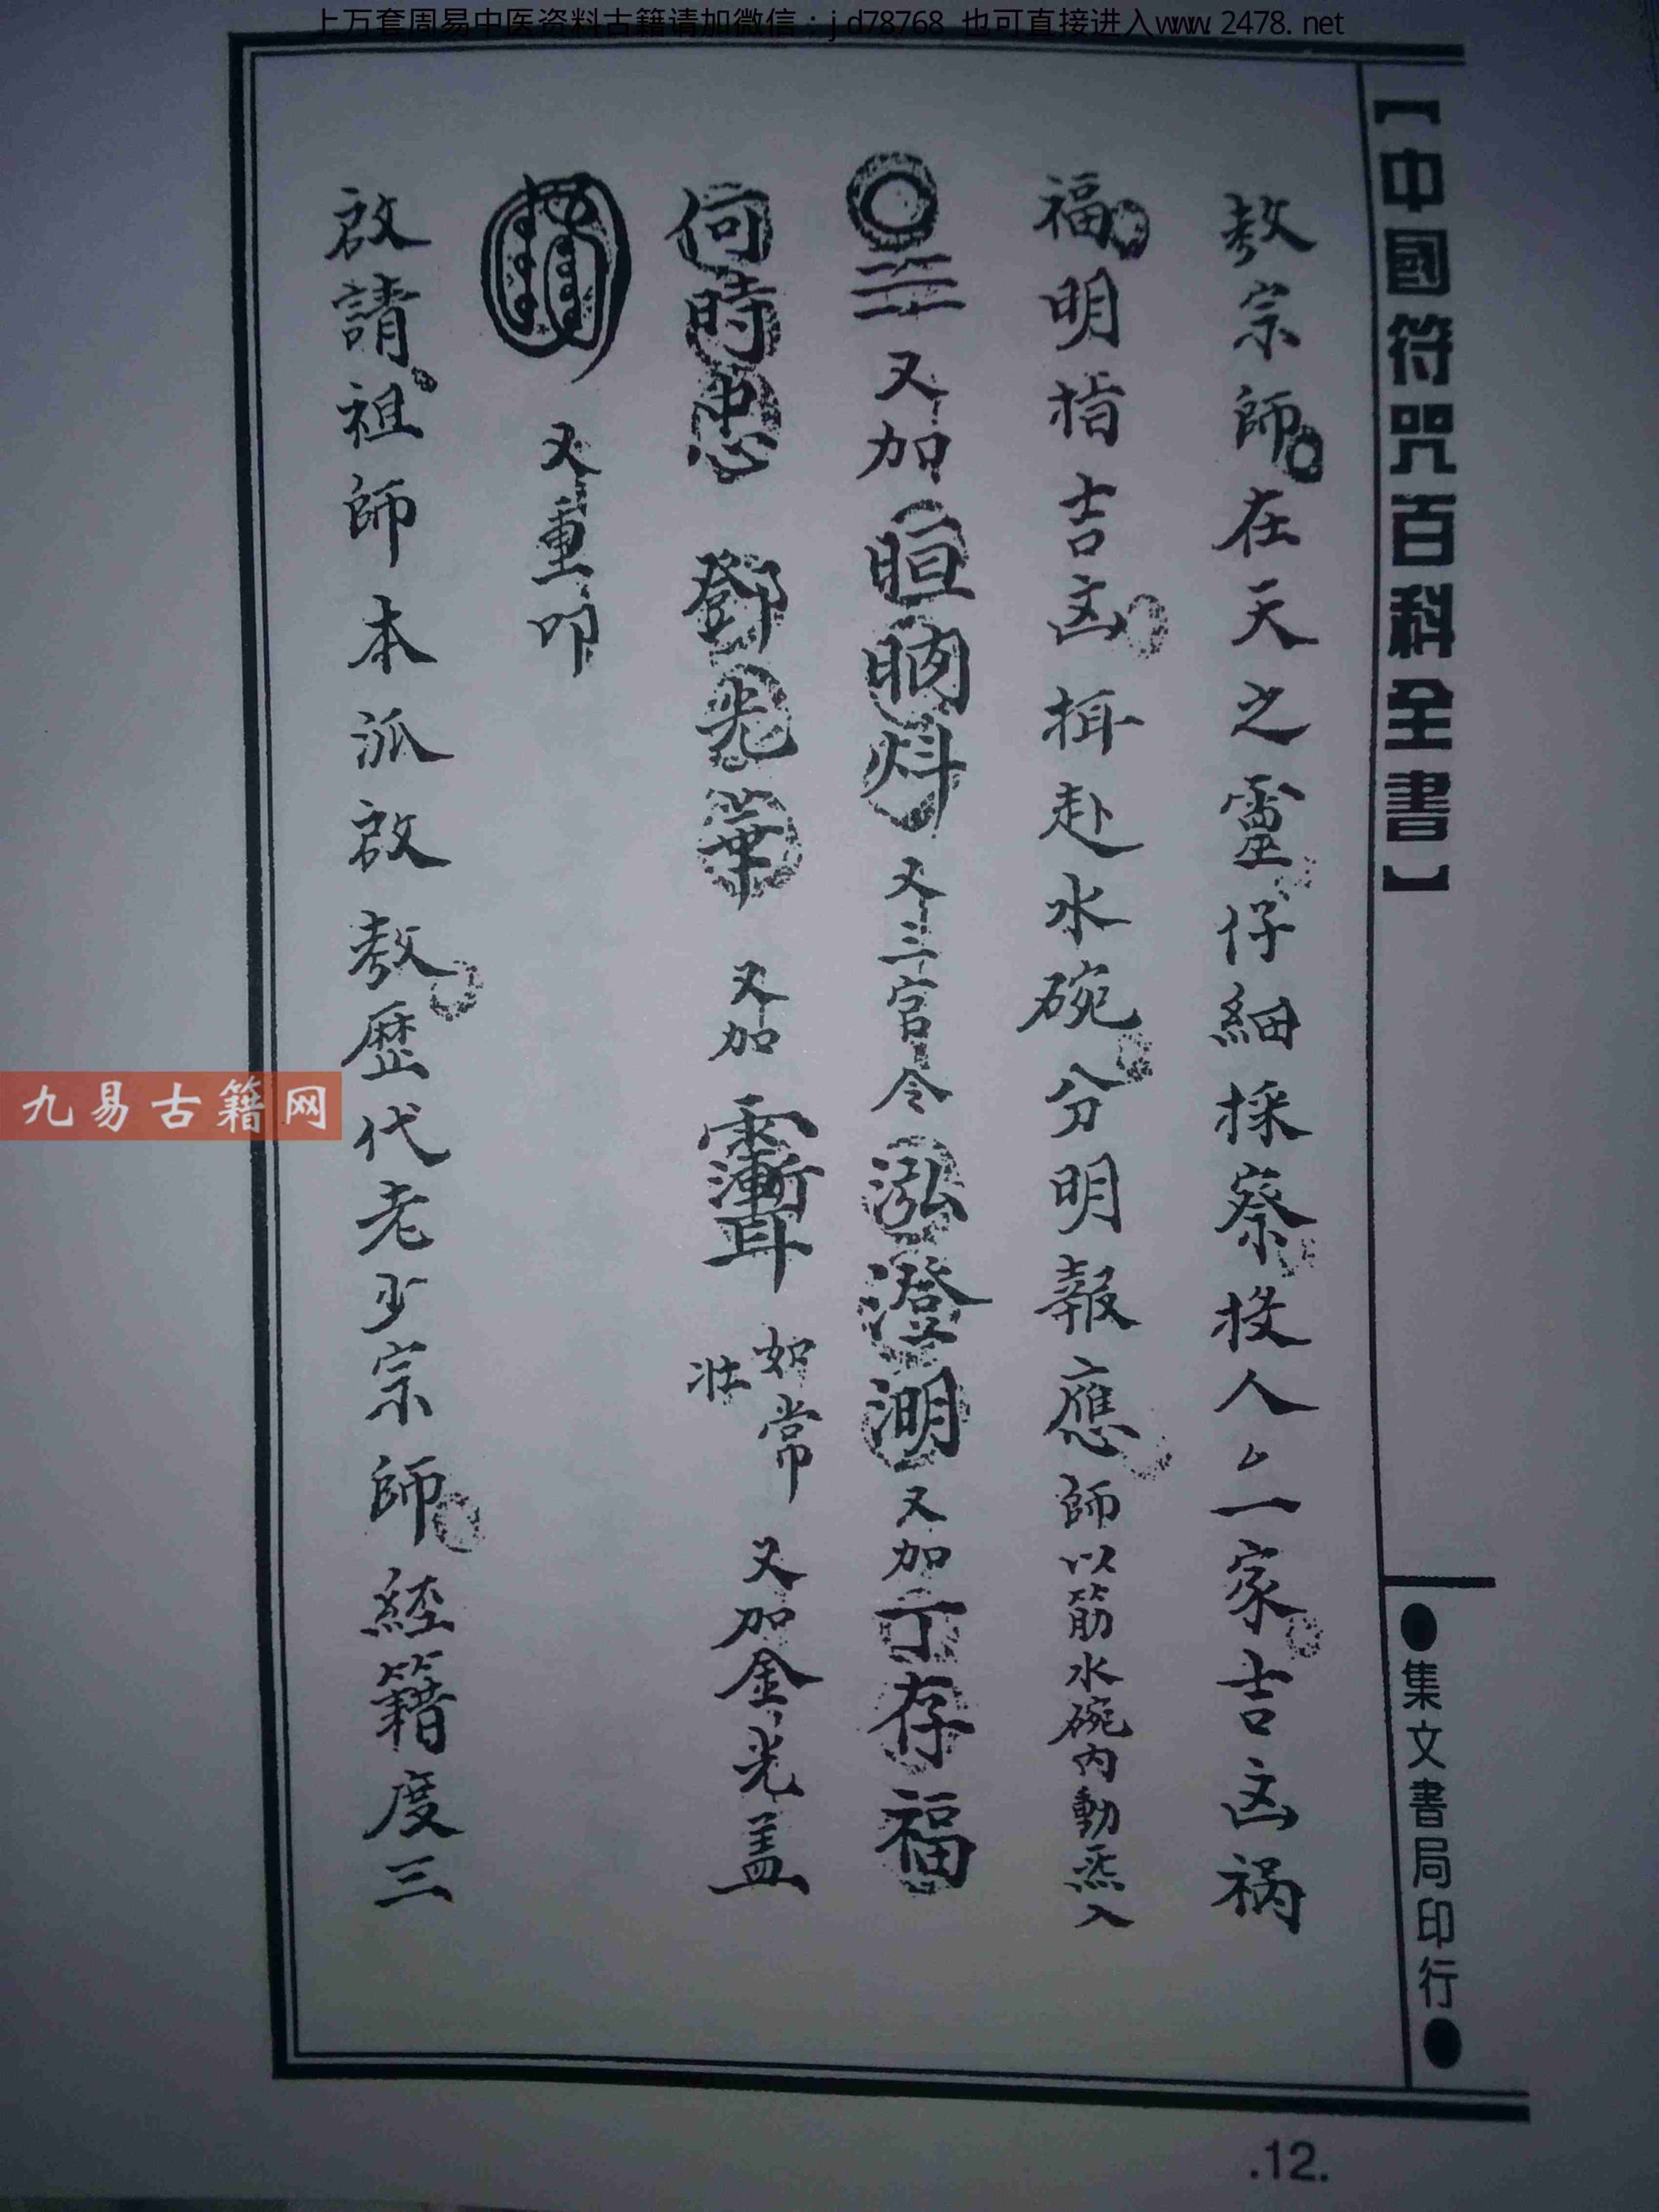 上万套周易中医资料古籍请加微信：jd78768 也可直接进入www.2478.net
【中國符咒百科全書】
●集文書局印行●
教宗師在天之靈仔細採察投人亡一家吉凶祸
福明指吉凶揖赴水碗分明報應師以筋水碗内動炁入
又加晅昞炓又三官令泓澄溯又加丁存福
何時忠鄧光華又加如常壮又加金光盖
又重叩
啟請祖師本派啟教歷代老少宗師經籍度三
九易古籍网
.12.